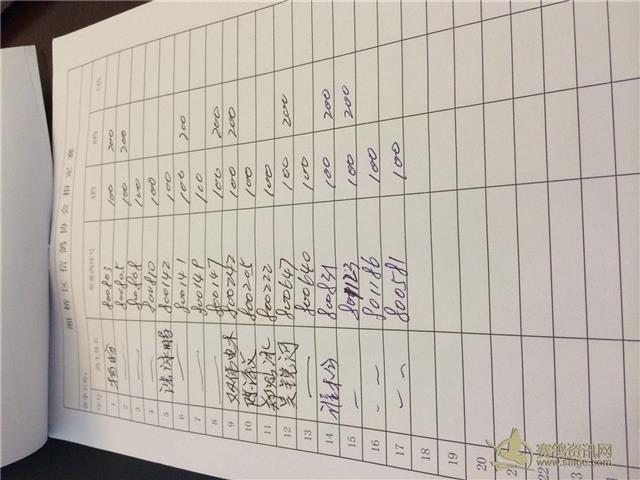 桥区信鸽协会指定赛
赛事名称:
序号 鸽主姓名 参赛鸽环号 A档 B档 C档
1 杨 800803 100 200
2 — 800805 100 200
3 — 800808 100
4 — 800810 100
5 沈 鹏 800142 100
6 — 800141 100 200
7 — 800149 100
8 — 800147 100 200
9 800242 100 200
10 陈 800205 100
11 800222 100
12 吴 800647 100 200
13 — 800640 100
14 800831 100 200
15 — 100 200
16 801186 100
17 800581 100
18
19
20
21
22
赛鸽资讯网
www.saige.com